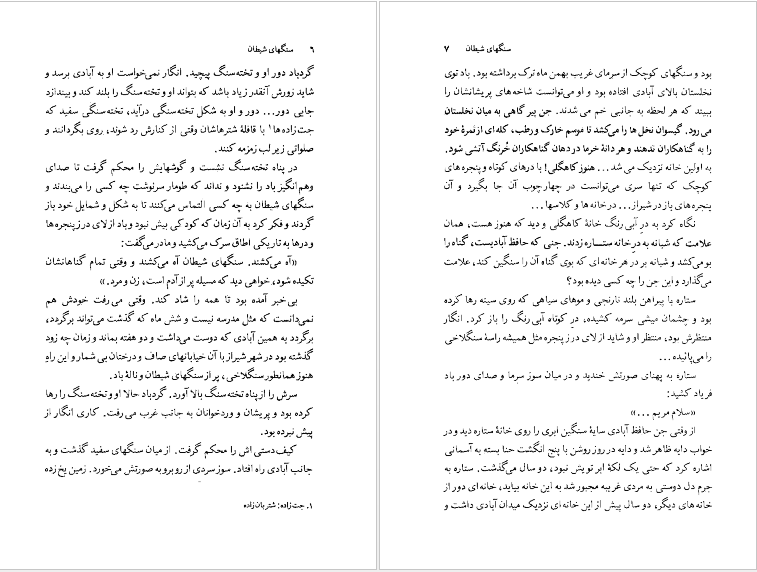 ۶ سنگهای شیطان
گردباد دور او و تخته‌سنگ پیچید. انگار نمی‌خواست او به آبادی برسد و
شاید زورش آنقدر زیاد باشد که بتواند او و تخته‌سنگ را بلند کند و بیندازد
جایی دور... دور و او به شکل تخته‌سنگی درآید، تخته‌سنگی سفید که
جت‌زاده‌ها۱ با قافلهٔ شترهاشان وقتی از کنارش رد شوند، روی بگردانند و
صلواتی زیر لب زمزمه کنند.
در پناه تخته‌سنگ نشست و گوشهایش را محکم گرفت تا صدای
وهم‌انگیز باد را نشنود و نداند که طومار سرنوشت چه کسی را می‌بندند و
سنگهای شیطان به چه کسی التماس می‌کنند تا به شکل و شمایل خود باز
گردند و فکر کرد به آن زمان که کودکی بیش نبود و باد از لای درز پنجره‌ها
و درها به تاریکی اطاق سرک می‌کشید و مادر می‌گفت:
«آه می‌کشند. سنگهای شیطان آه می‌کشند و وقتی تمام گناهانشان
تکیده شود، خواهی دید که مسیله پر از آدم است، زن و مرد.»
بی‌خبر آمده بود تا همه را شاد کند. وقتی می‌رفت خودش هم
نمی‌دانست که مثل مدرسه نیست و شش ماه که گذشت می‌تواند برگردد،
برگردد به همین آبادی که دوست می‌داشت و دو هفته بماند و زمان چه زود
گذشته بود در شهر شیراز با آن خیابانهای صاف و درختان بی‌شمار و این راهِ
هنوز همانطور سنگلاخی، پر از سنگهای شیطان و نالهٔ باد.
سرش را از پناه تخته‌سنگ بالا آورد. گردباد حالا او و تخته‌سنگ را رها
کرده بود و پریشان و وردخوانان به جانب غرب می‌رفت. کاری انگار از
پیش نبرده بود.
کیف دستی‌اش را محکم گرفت. از میان سنگهای سفید گذشت و به
جانب آبادی راه افتاد. سوز سردی از روبرو به صورتش می‌خورد. زمین یخ زده
۱. جت‌زاده: شتربان‌زاده
سنگهای شیطان ۷
بود و سنگهای کوچک از سرمای غریب بهمن ماه ترک برداشته بود. باد توی
نخلستان بالای آبادی افتاده بود و او می‌توانست شاخه‌های پریشانشان را
ببیند که هر لحظه به جانبی خم می‌شدند. جن پیر گاهی به میان نخلستان
می‌رود. گیسوان نخل‌ها را می‌کشد تا موسم خارک و رطب، کله‌ای از ثمرهٔ خود
را به گناهکاران ندهند و هر دانهٔ خرما در دهان گناهکاران خُرنگ آتشی شود.
به اولین خانه نزدیک می‌شد... هنوز کاهگلی! با درهای کوتاه و پنجره‌های
کوچک که تنها سری می‌توانست در چهارچوب آن جا بگیرد و آن
پنجره‌های باز در شیراز... در خانه‌ها و کلاسها...
نگاه کرد به در آبی رنگ خانهٔ کاهگلی و دید که هنوز هست، همان
علامت که شبانه به در خانه ستاره زدند. جنی که حافظ آبادیست، گناه را
بو می‌کشد و شبانه بر در هر خانه‌ای که بوی گناه آن را سنگین کند، علامت
می‌گذارد و این جن را چه کسی دیده بود؟
ستاره با پیراهن بلند نارنجی و موهای سیاهی که روی سینه رها کرده
بود و چشمان میشی سرمه کشیده، در کوتاه آبی رنگ را باز کرد. انگار
منتظرش بود، منتظر او و شاید از لای درز پنجره مثل همیشه راسهٔ سنگلاخی
را می‌پائیده...
ستاره به پهنای صورتش خندید و در میان سوز سرما و صدای دور باد
فریاد کشید:
«سلام مریم...»
از وقتی جن حافظ آبادی سایهٔ سنگین ابری را روی خانهٔ ستاره دید و در
خواب دایه ظاهر شد و دایه در روز روشن با پنج انگشت حنا بسته به آسمانی
اشاره کرد که حتی یک لکهٔ ابر تویش نبود، دو سال می‌گذشت. ستاره به
جرم دل دوستی به مردی غریبه مجبور شد به این خانه بیاید، خانه‌ای دور از
خانه‌های دیگر، دو سال پیش از این خانه‌ای نزدیک میدان آبادی داشت و